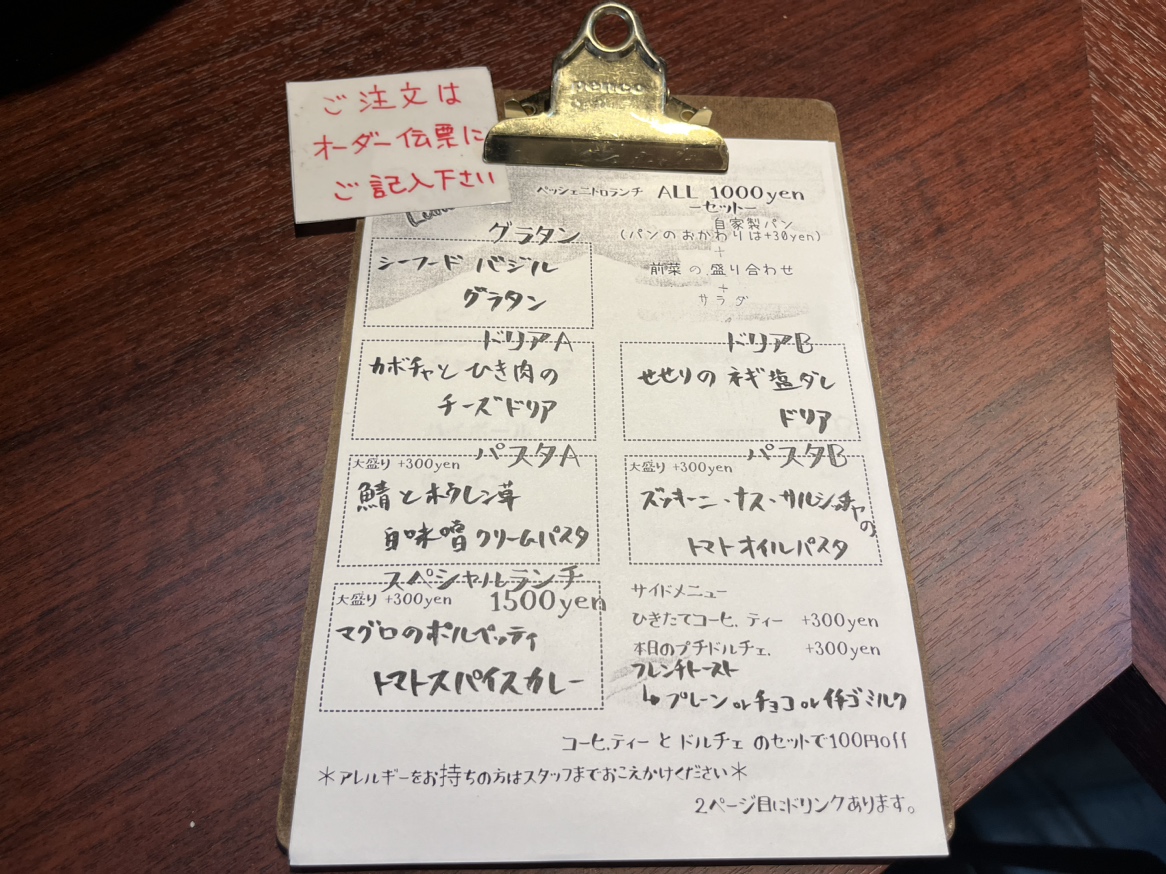 ご注文は
オーダー伝票に
ご記入下さい
penco
ペッシェニトロランチ ALL 1000yen
ーセットー
自家製パン
(パンのおかわりは+30yen)
+
前菜の盛り合わせ
+
サラダ
グラタン
シーフード バジル
グラタン
ドリアA
カボチャと ひき肉の
チーズドリア
ドリアB
せせりの ネギ塩ダレ
ドリア
パスタA
大盛り +300yen
鯖とホウレン草
白味噌クリームパスタ
パスタB
大盛り +300yen
ズッキーニ・ナス・サルシッチャの
トマトオイルパスタ
スペシャルランチ
大盛り +300yen 1500yen
マグロのポルペッティ
トマトスパイスカレー
サイドメニュー
ひきたてコーヒ. ティー +300yen
本日のプチドルチェ. +300yen
フレンチトースト
↳プレーン or チョコ or イチゴミルク
コーヒ.ティー と ドルチェ のセットで100円off
＊アレルギーをお持ちの方はスタッフまでおこえかけください＊
2ページ目にドリンクあります。